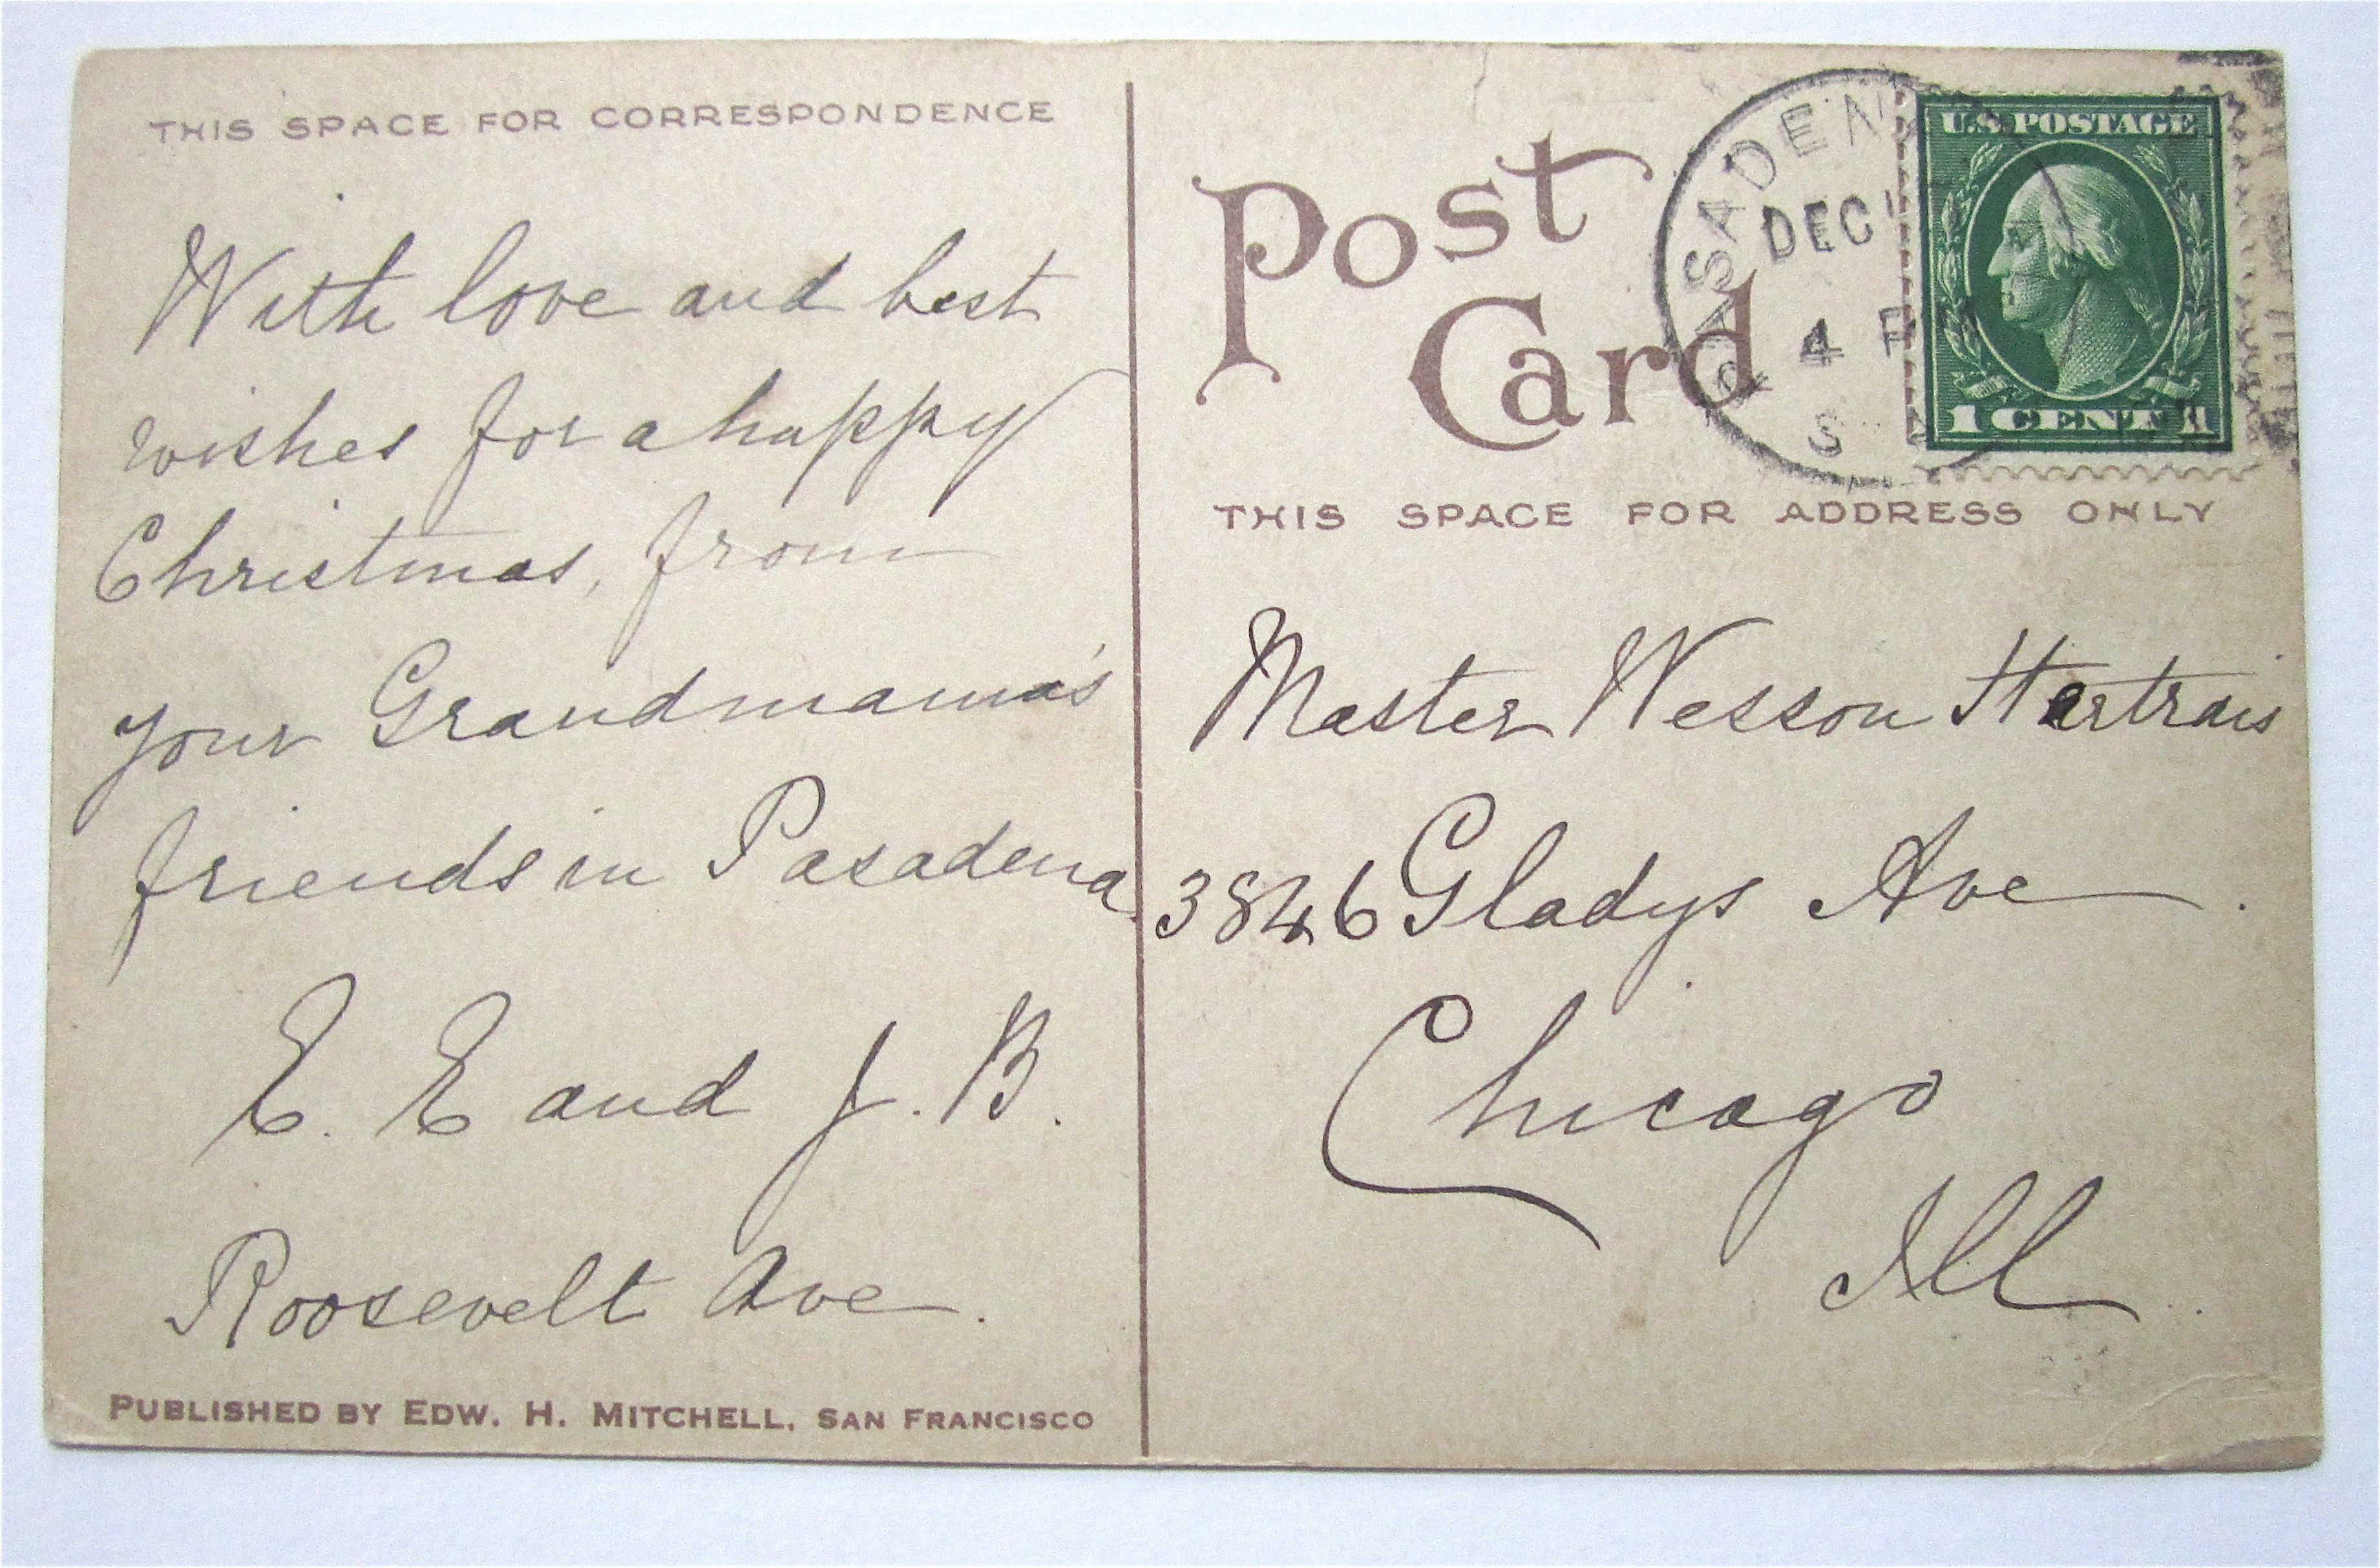 THIS SPACE FOR CORRESPONDENCE
With love and best
wishes for a happy
Christmas, from
your Grandmama's
friends in Pasadena.
E. E and J. B.
Roosevelt Ave.
PUBLISHED BY EDW. H. MITCHELL, SAN FRANCISCO
Post
Card
PASADENA
DEC
4 P
S
U.S. POSTAGE
1 CENT 1
THIS SPACE FOR ADDRESS ONLY
Master Wesson Hertrais
3846 Gladys Ave.
Chicago
Ill.